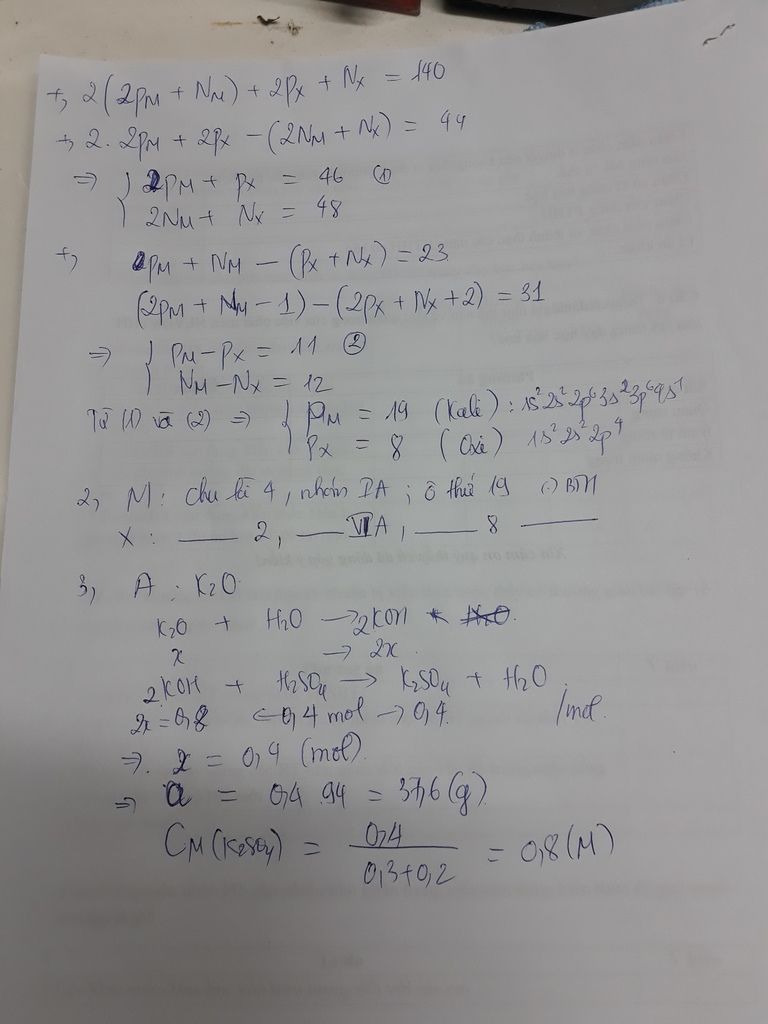 +, 2(2pM + NM) + 2pX + NX = 140
+, 2. 2pM + 2pX - (2NM + NX) = 44
=> { 2pM + pX = 46 (1)
2NM + NX = 48
+, pM + NM - (pX + NX) = 23
(2pM + NM - 1) - (2pX + NX + 2) = 31
=> { pM - pX = 11 (2)
NM - NX = 12
Từ (1) và (2) => { pM = 19 (Kali) : 1s² 2s² 2p⁶ 3s² 3p⁶ 4s¹
pX = 8 (Oxi) 1s² 2s² 2p⁴
2, M : chu kì 4, nhóm IA ; ô thứ 19 (·) BTH
X : —— 2, —— VIA, —— 8 ——
3, A : K₂O
K₂O + H₂O → 2KOH
x → 2x
2KOH + H₂SO₄ → K₂SO₄ + H₂O
2x = 0,8 ← 0,4 mol → 0,4 /mol
=> x = 0,4 (mol)
=> a = 0,4 . 94 = 37,6 (g)
CM(K₂SO₄) = 0,4 / 0,3+0,2 = 0,8 (M)